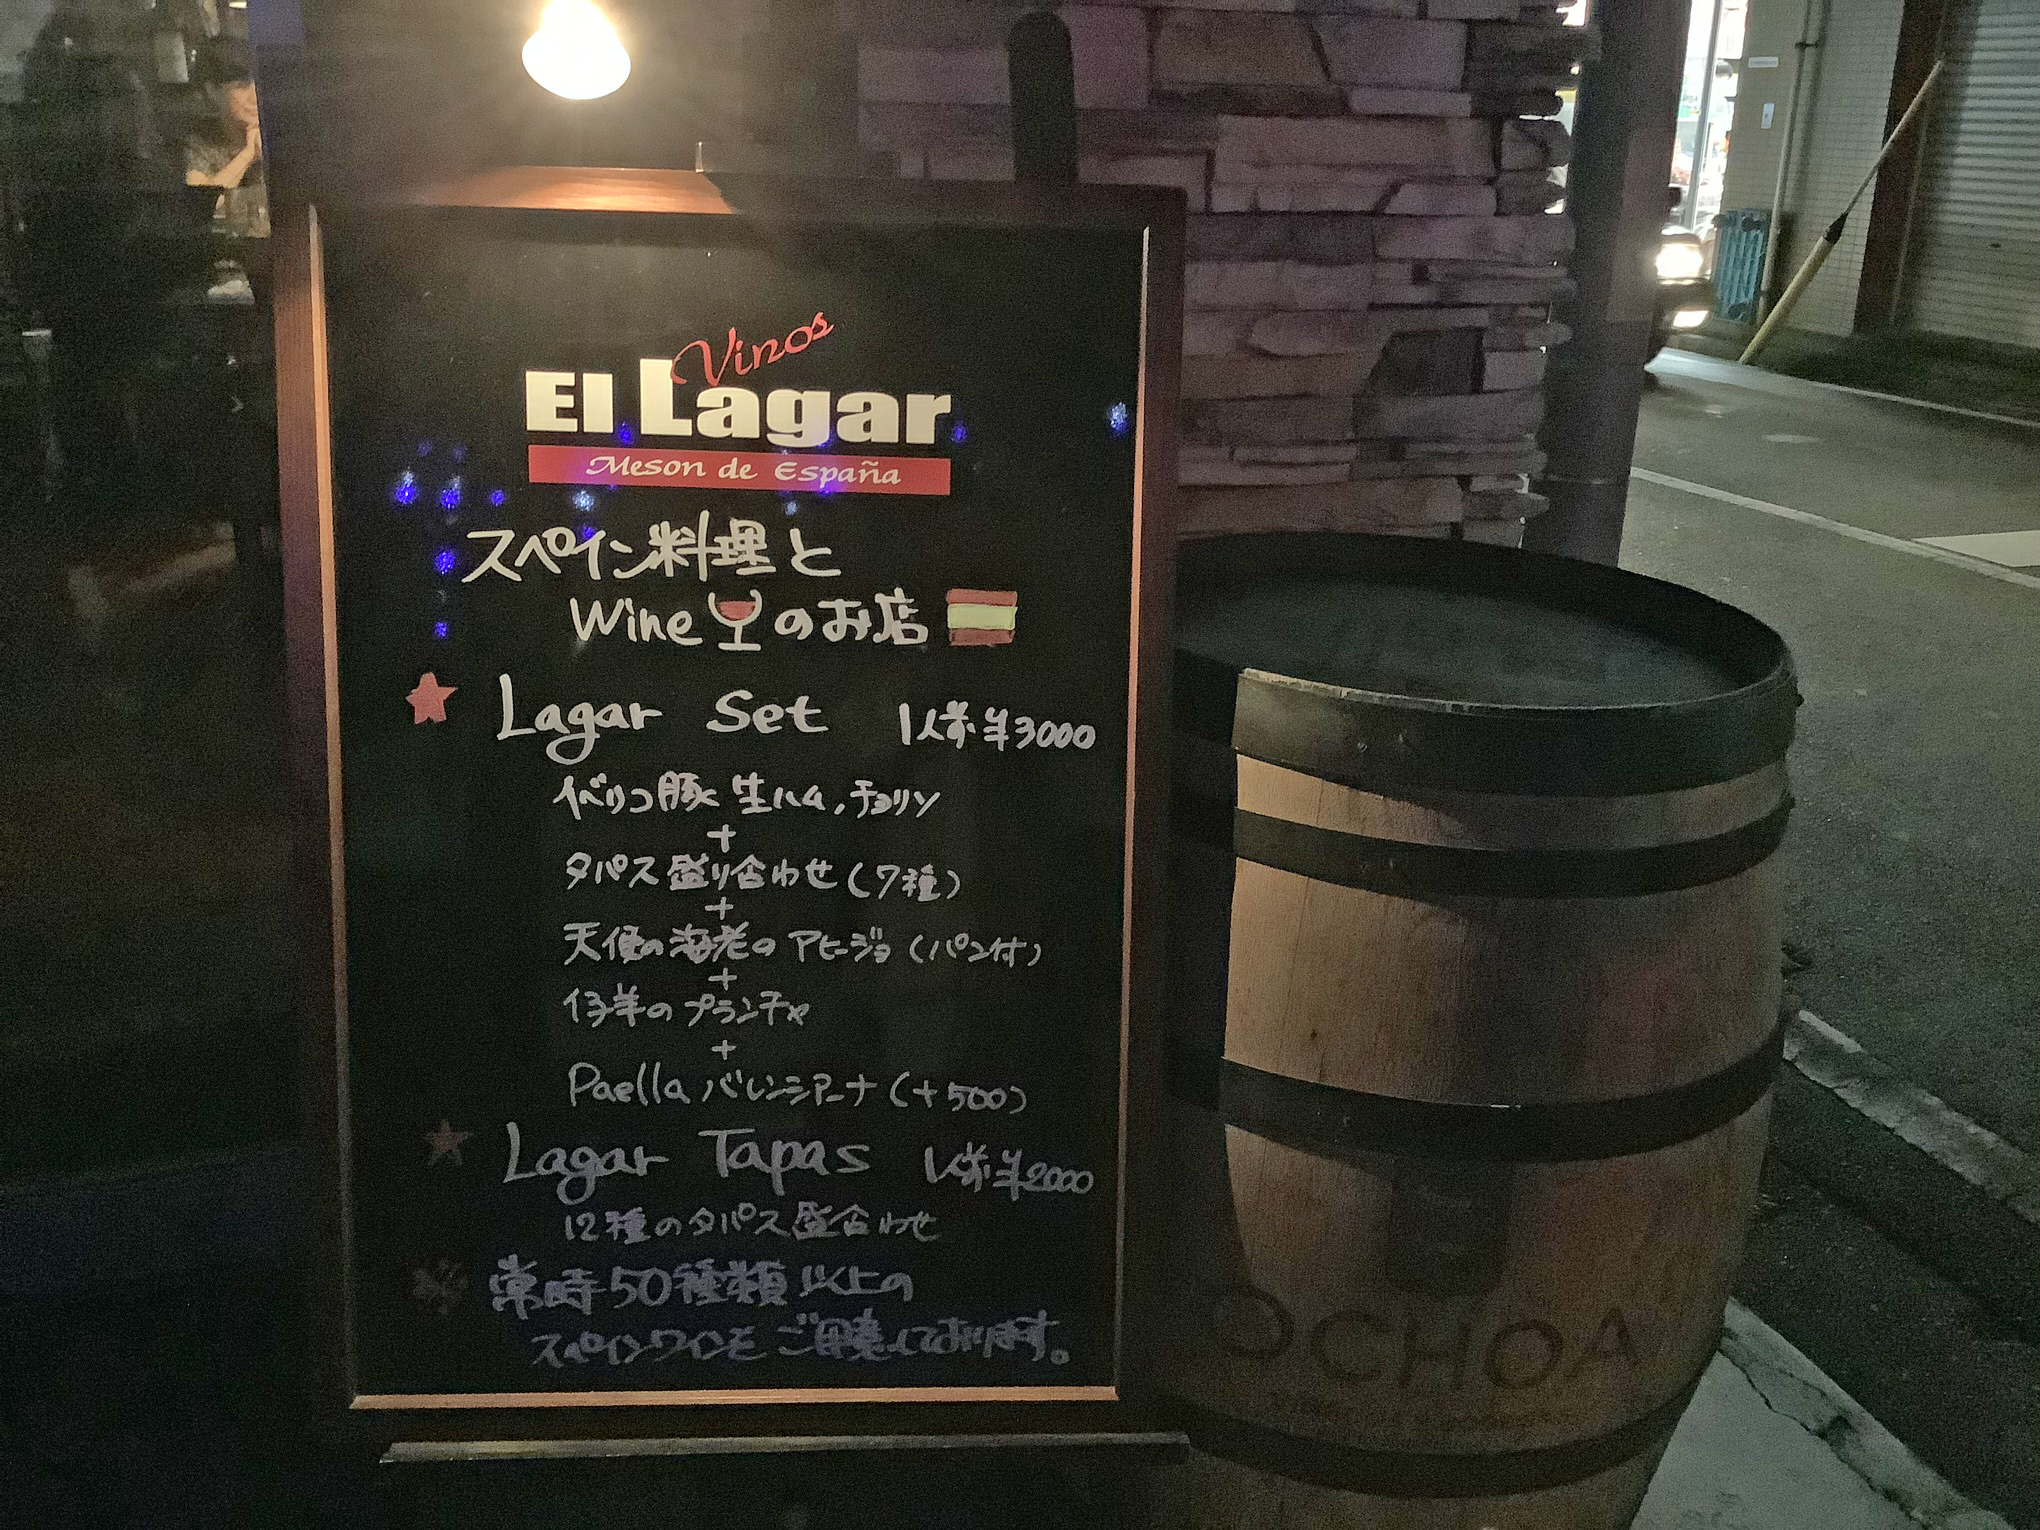 Vinos
El Lagar
Meson de España
スペイン料理と
Wineのお店
Lagar Set 1人前¥3000
イベリコ豚 生ハム,チョリソ
+
タパス盛り合わせ(7種)
+
天使の海老のアヒージョ(パン付)
+
仔羊のプランチャ
+
Paella バレンシアーナ(+500)
Lagar Tapas 1人前¥2000
12種のタパス盛合わせ
常時50種類以上の
スペインワインをご用意しております。
OCHOA